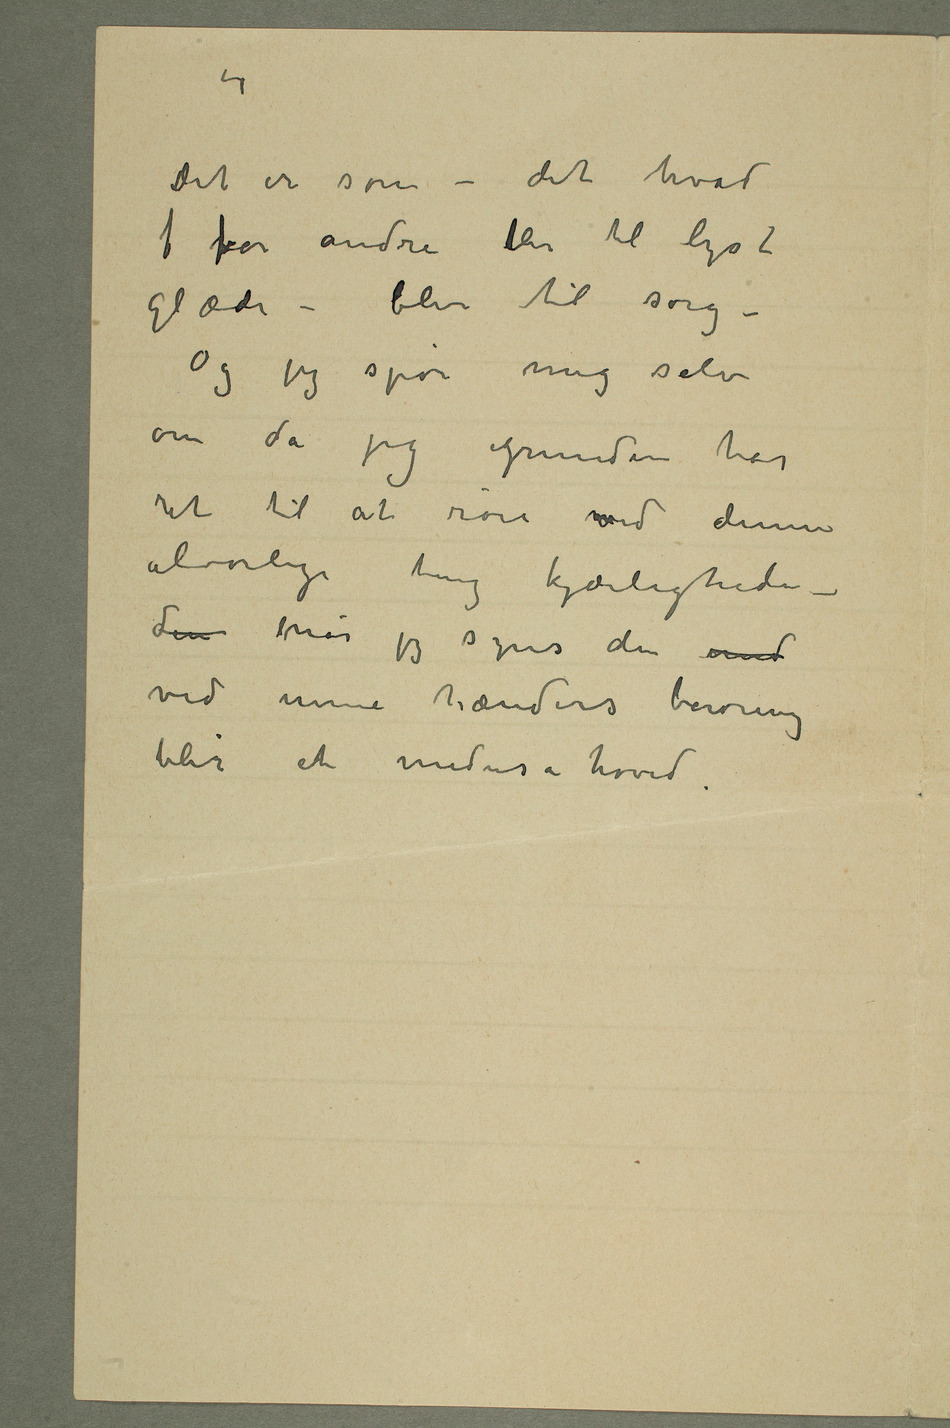 Det er som – det hvad
for andre blir til lyst
glæde – blir til sorg –
Og jeg spør mig selv
om da jeg igrunden har
ret til at røre ved denne
alvorlige ting kjærligheden –
den når jeg synes den med
ved mine hænders berøring
blir et medusa hoved.